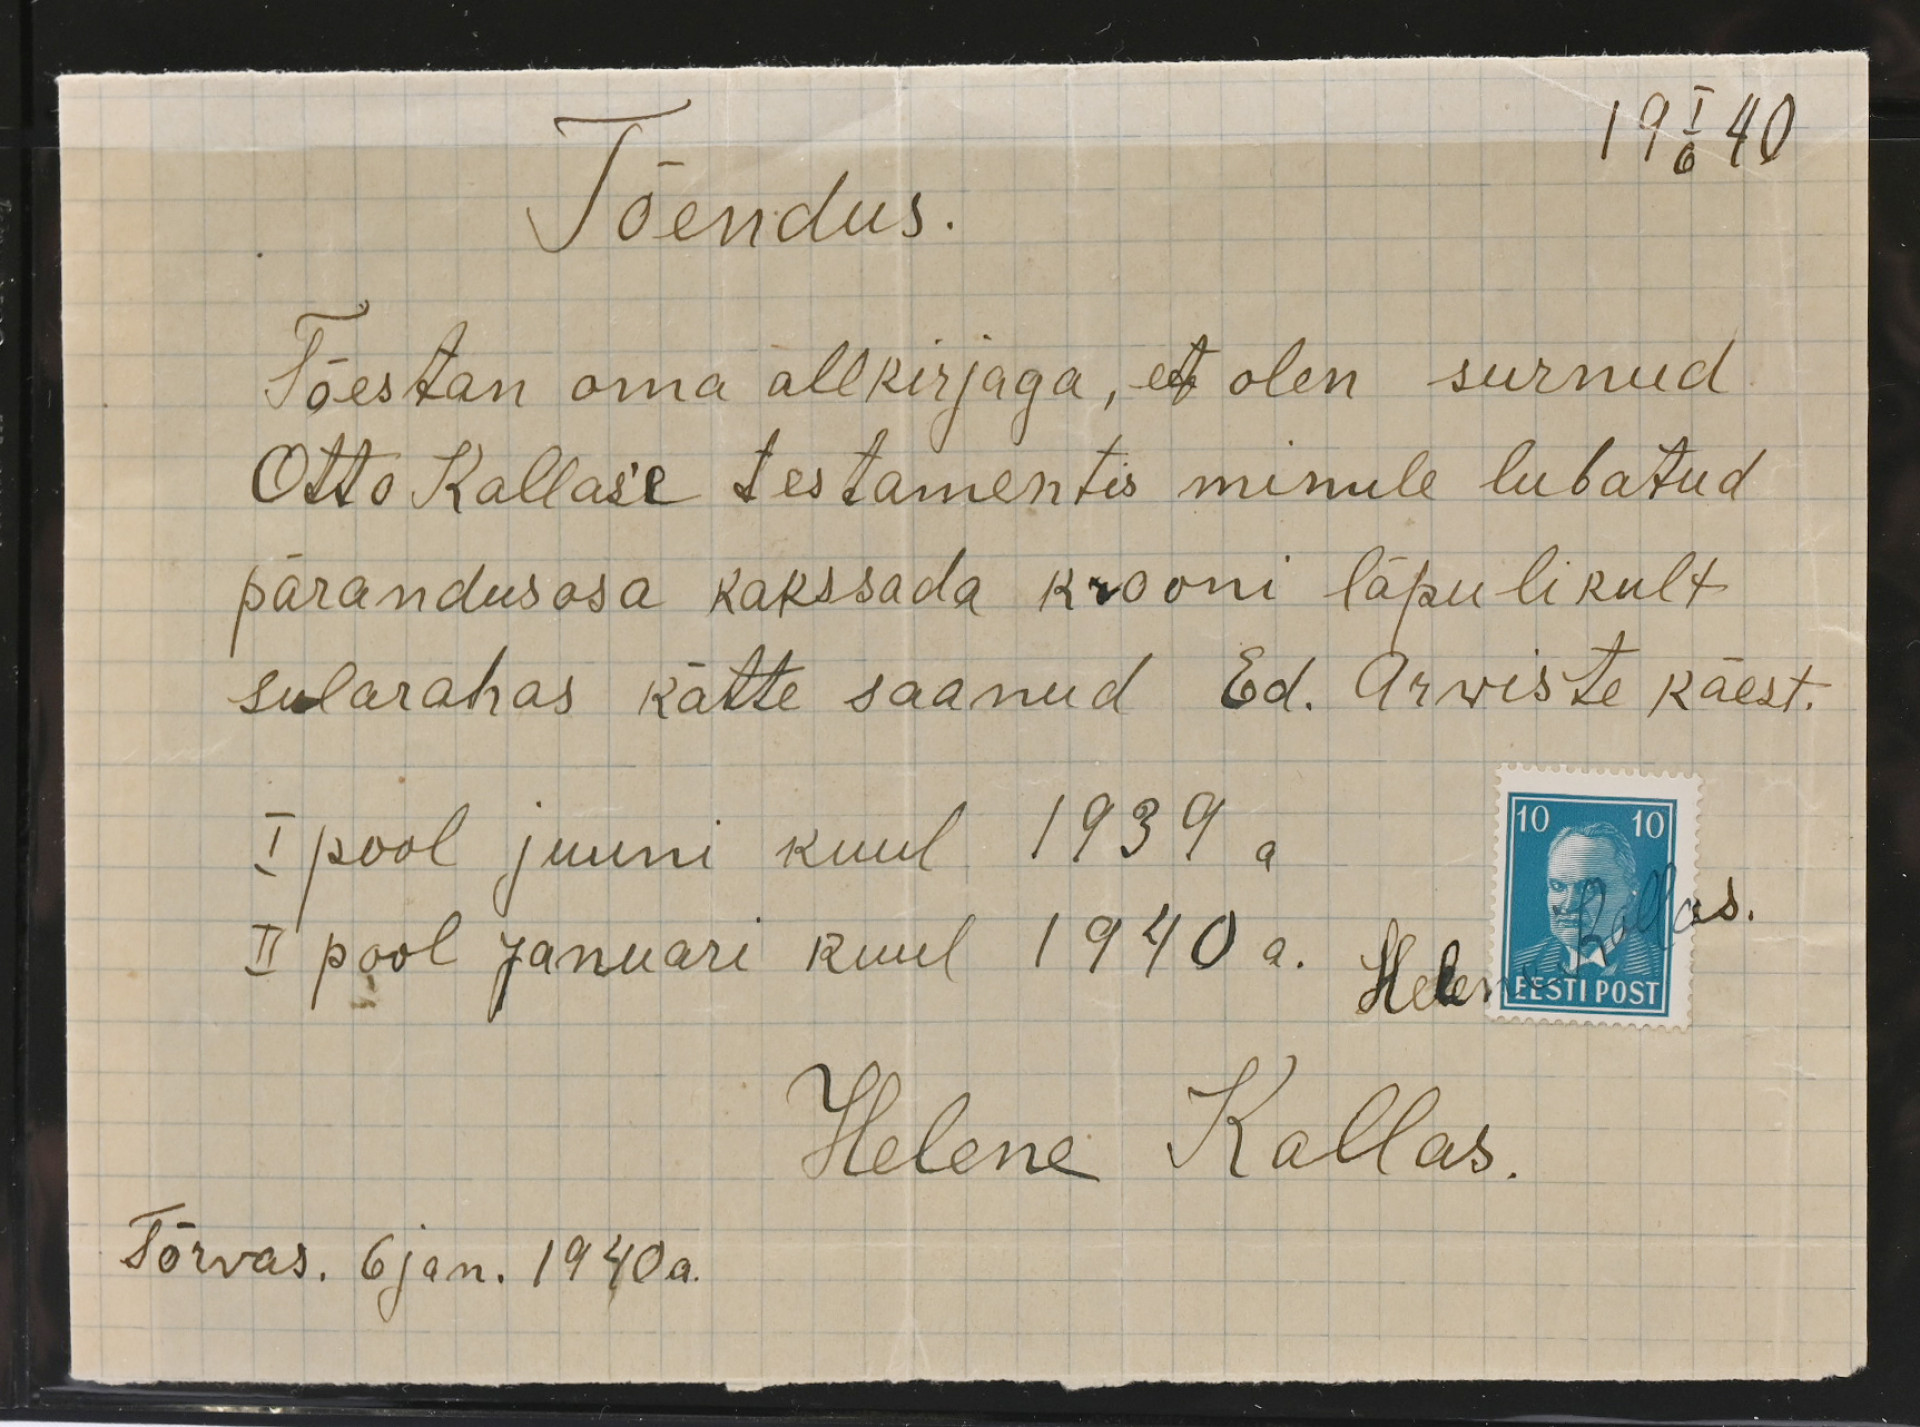 19 I/6 40
Tõendus.
Tõestan oma allkirjaga, et olen surnud
Otto Kallas'e testamentis minule lubatud
pärandusosa kakssada krooni lõpulikult
sularahas kätte saanud Ed. Arwiste käest.
I pool juuni kuul 1939 a
II pool januari kuul 1940 a.
10 10
EESTI POST
Helene Kallas.
Helene Kallas.
Tõrvas. 6 jan. 1940 a.